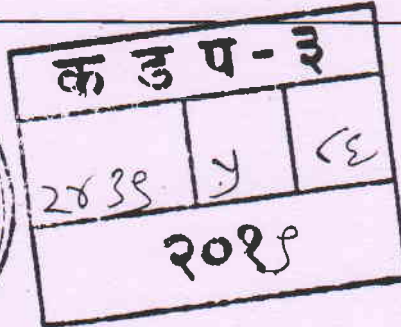 क ड प - ३
२४३९ ५ ८६
२०१९